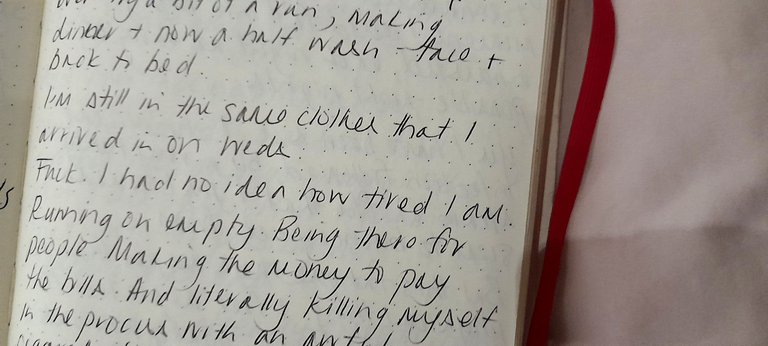 a bit of a run, making
dinner + now a half wash - face +
back to bed.
I'm still in the same clothes that I
arrived in on Weds.
Fuck. I had no idea how tired I am.
Running on empty. Being there for
people. Making the money to pay
the bills. And literally killing myself
in the process with an